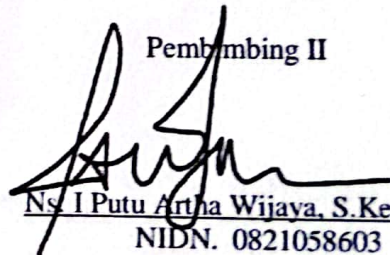 Pembimbing II
Ns. I Putu Artha Wijaya, S.Ke
NIDN. 0821058603